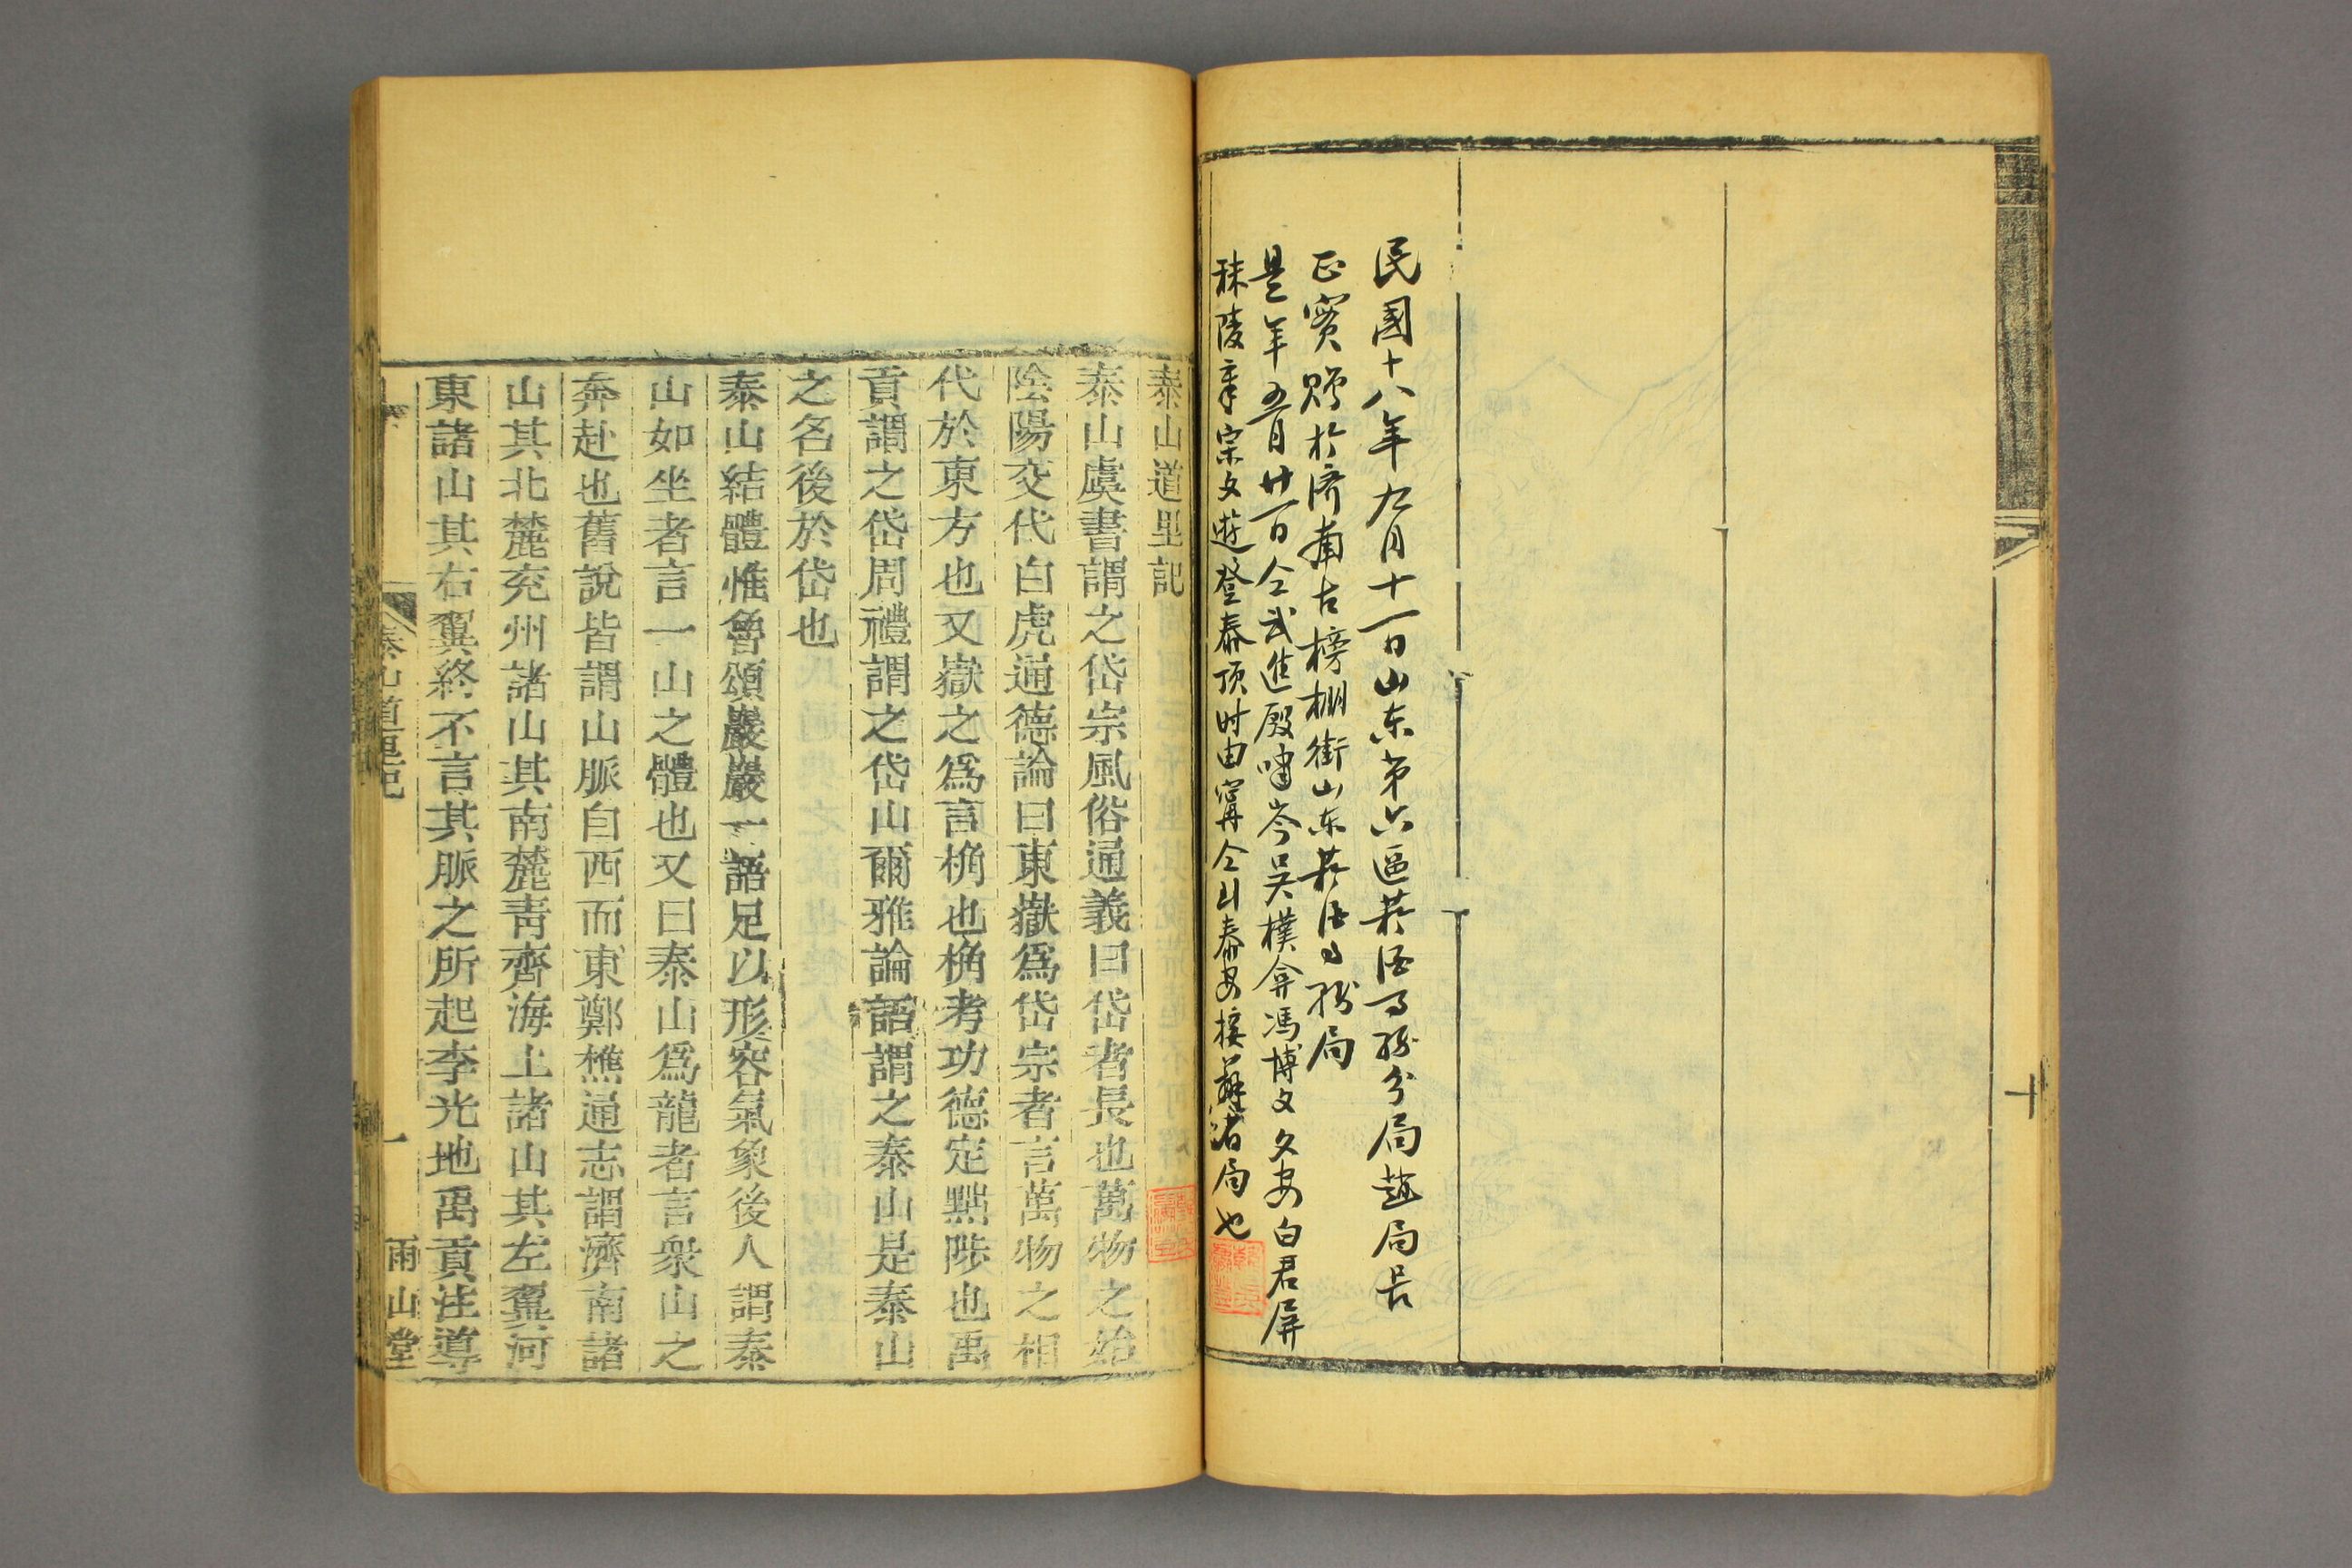 十
民國十八年九月十一日山东第六區菸酒事務分局趙局長
正寶贈於濟南古榜棚街山东菸酒事務局
是年五月廿一日仝武進殷嘯岑吳樸弇馮博文文安白君屏
秣陵章宗文遊登泰顶时由寗仝出泰安接蘇省局也
泰山道里記
泰山虞書謂之岱宗風俗通義曰岱者長也萬物之始
陰陽交代白虎通德論曰東嶽爲岱宗者言萬物之相
代於東方也又嶽之爲言桷也桷考功德定黜陟也禹
貢謂之岱周禮謂之岱山爾雅論語謂之泰山是泰山
之名後於岱也
泰山結體惟魯頌巖巖一語足以形容氣象後人謂泰
山如坐者言一山之體也又曰泰山爲龍者言衆山之
奔赴也舊說皆謂山脈自西而東鄭樵通志謂濟南諸
山其北麓兗州諸山其南麓青齊海上諸山其左翼河
東諸山其右翼終不言其脈之所起李光地禹貢注導
泰山道里記 一 雨山堂